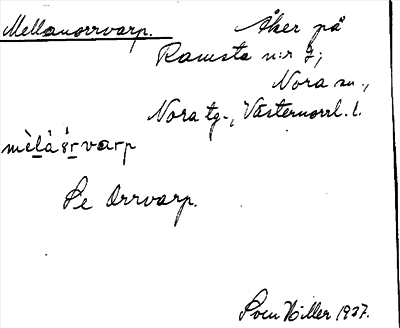 Mellanorrvarp. Åker på
Ramsta n:r 7,
Nora sn.,
Nora tg., Västernorrl. l.
mèlàŏ́rvarp
Se Orrvarp.
Sven Hiller 1937.